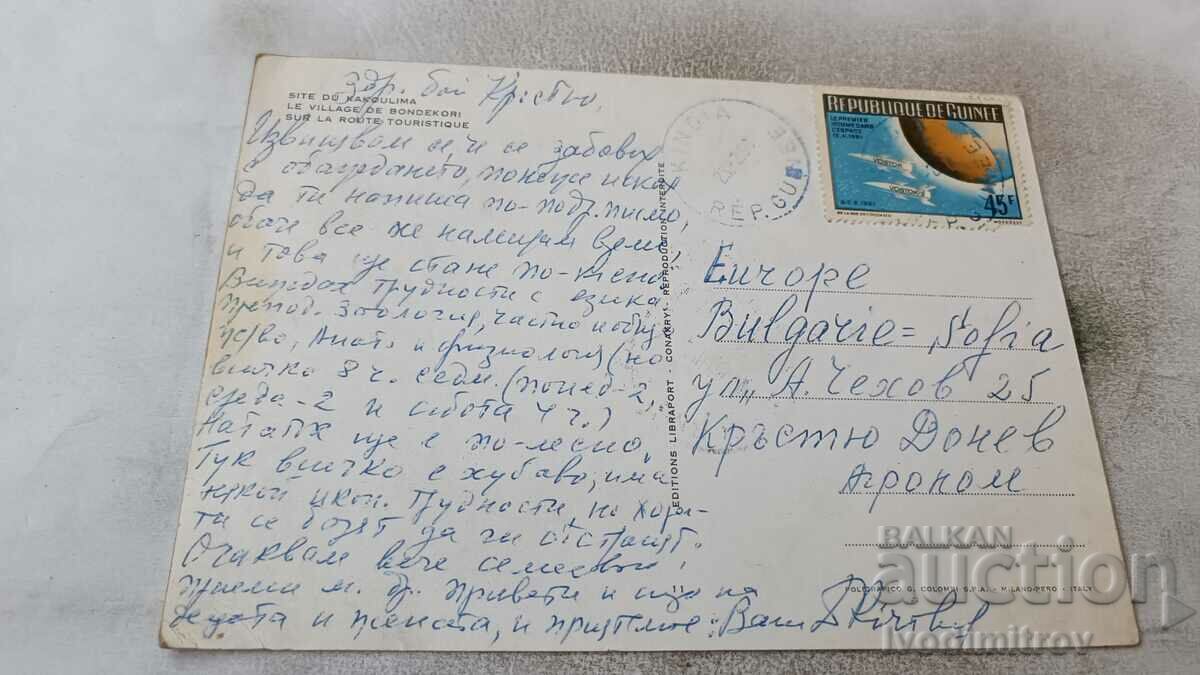 здр. бай Кръстю,
SITE DU KAKOULIMA
LE VILLAGE DE BONDEKORI
SUR LA ROUTE TOURISTIQUE
Извинявам се, че се забавих
с обаждането, понеже исках
да ти напиша по-подр. писмо,
обаче все же намирам време
и това ще стане по-късно.
Виждах трудности с езика
препод. Зоология, частно
Анат. и физиология (но
всичко 8 ч. седм. (понед-2,
сряда-2 и събота 4 ч.)
Нататък ще е по-лесно.
Тук всичко е хубаво, има
някои икон. трудности, но хора-
та се борят да ги отстранят.
Очаквам вече семейството
Приеми м. др. привети и още на
децата и жената, и приятелите: Ваш
EDITIONS LIBRAPORT - CONAKRY - REPRODUCTION INTERDITE
11
KINDIA
REP. GUI
REPUBLIQUE DE GUINEE
LE PREMIER
HOMME DANS
L'ESPACE
12.4.1961
VOSTOK
VOSTOK
45F
Europe
Bulgarie = Sofia
ул. „А. Чехов 25
Кръстю Донев
Агроном
POLIGRAFICO G. COLOMBI S.P.A. - MILANO-PERO - ITALY
BALKAN
auction
ivodimitrov